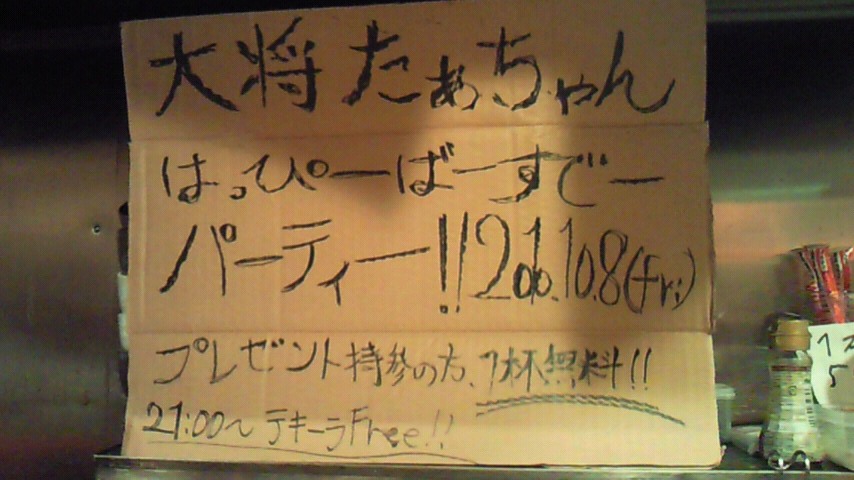 大将 たぁちゃん
はっぴーばーすでー
パーティー!! 2010.10.8(fri)
プレゼント持参の方、1杯無料!!
21:00〜 テキーラFree!!